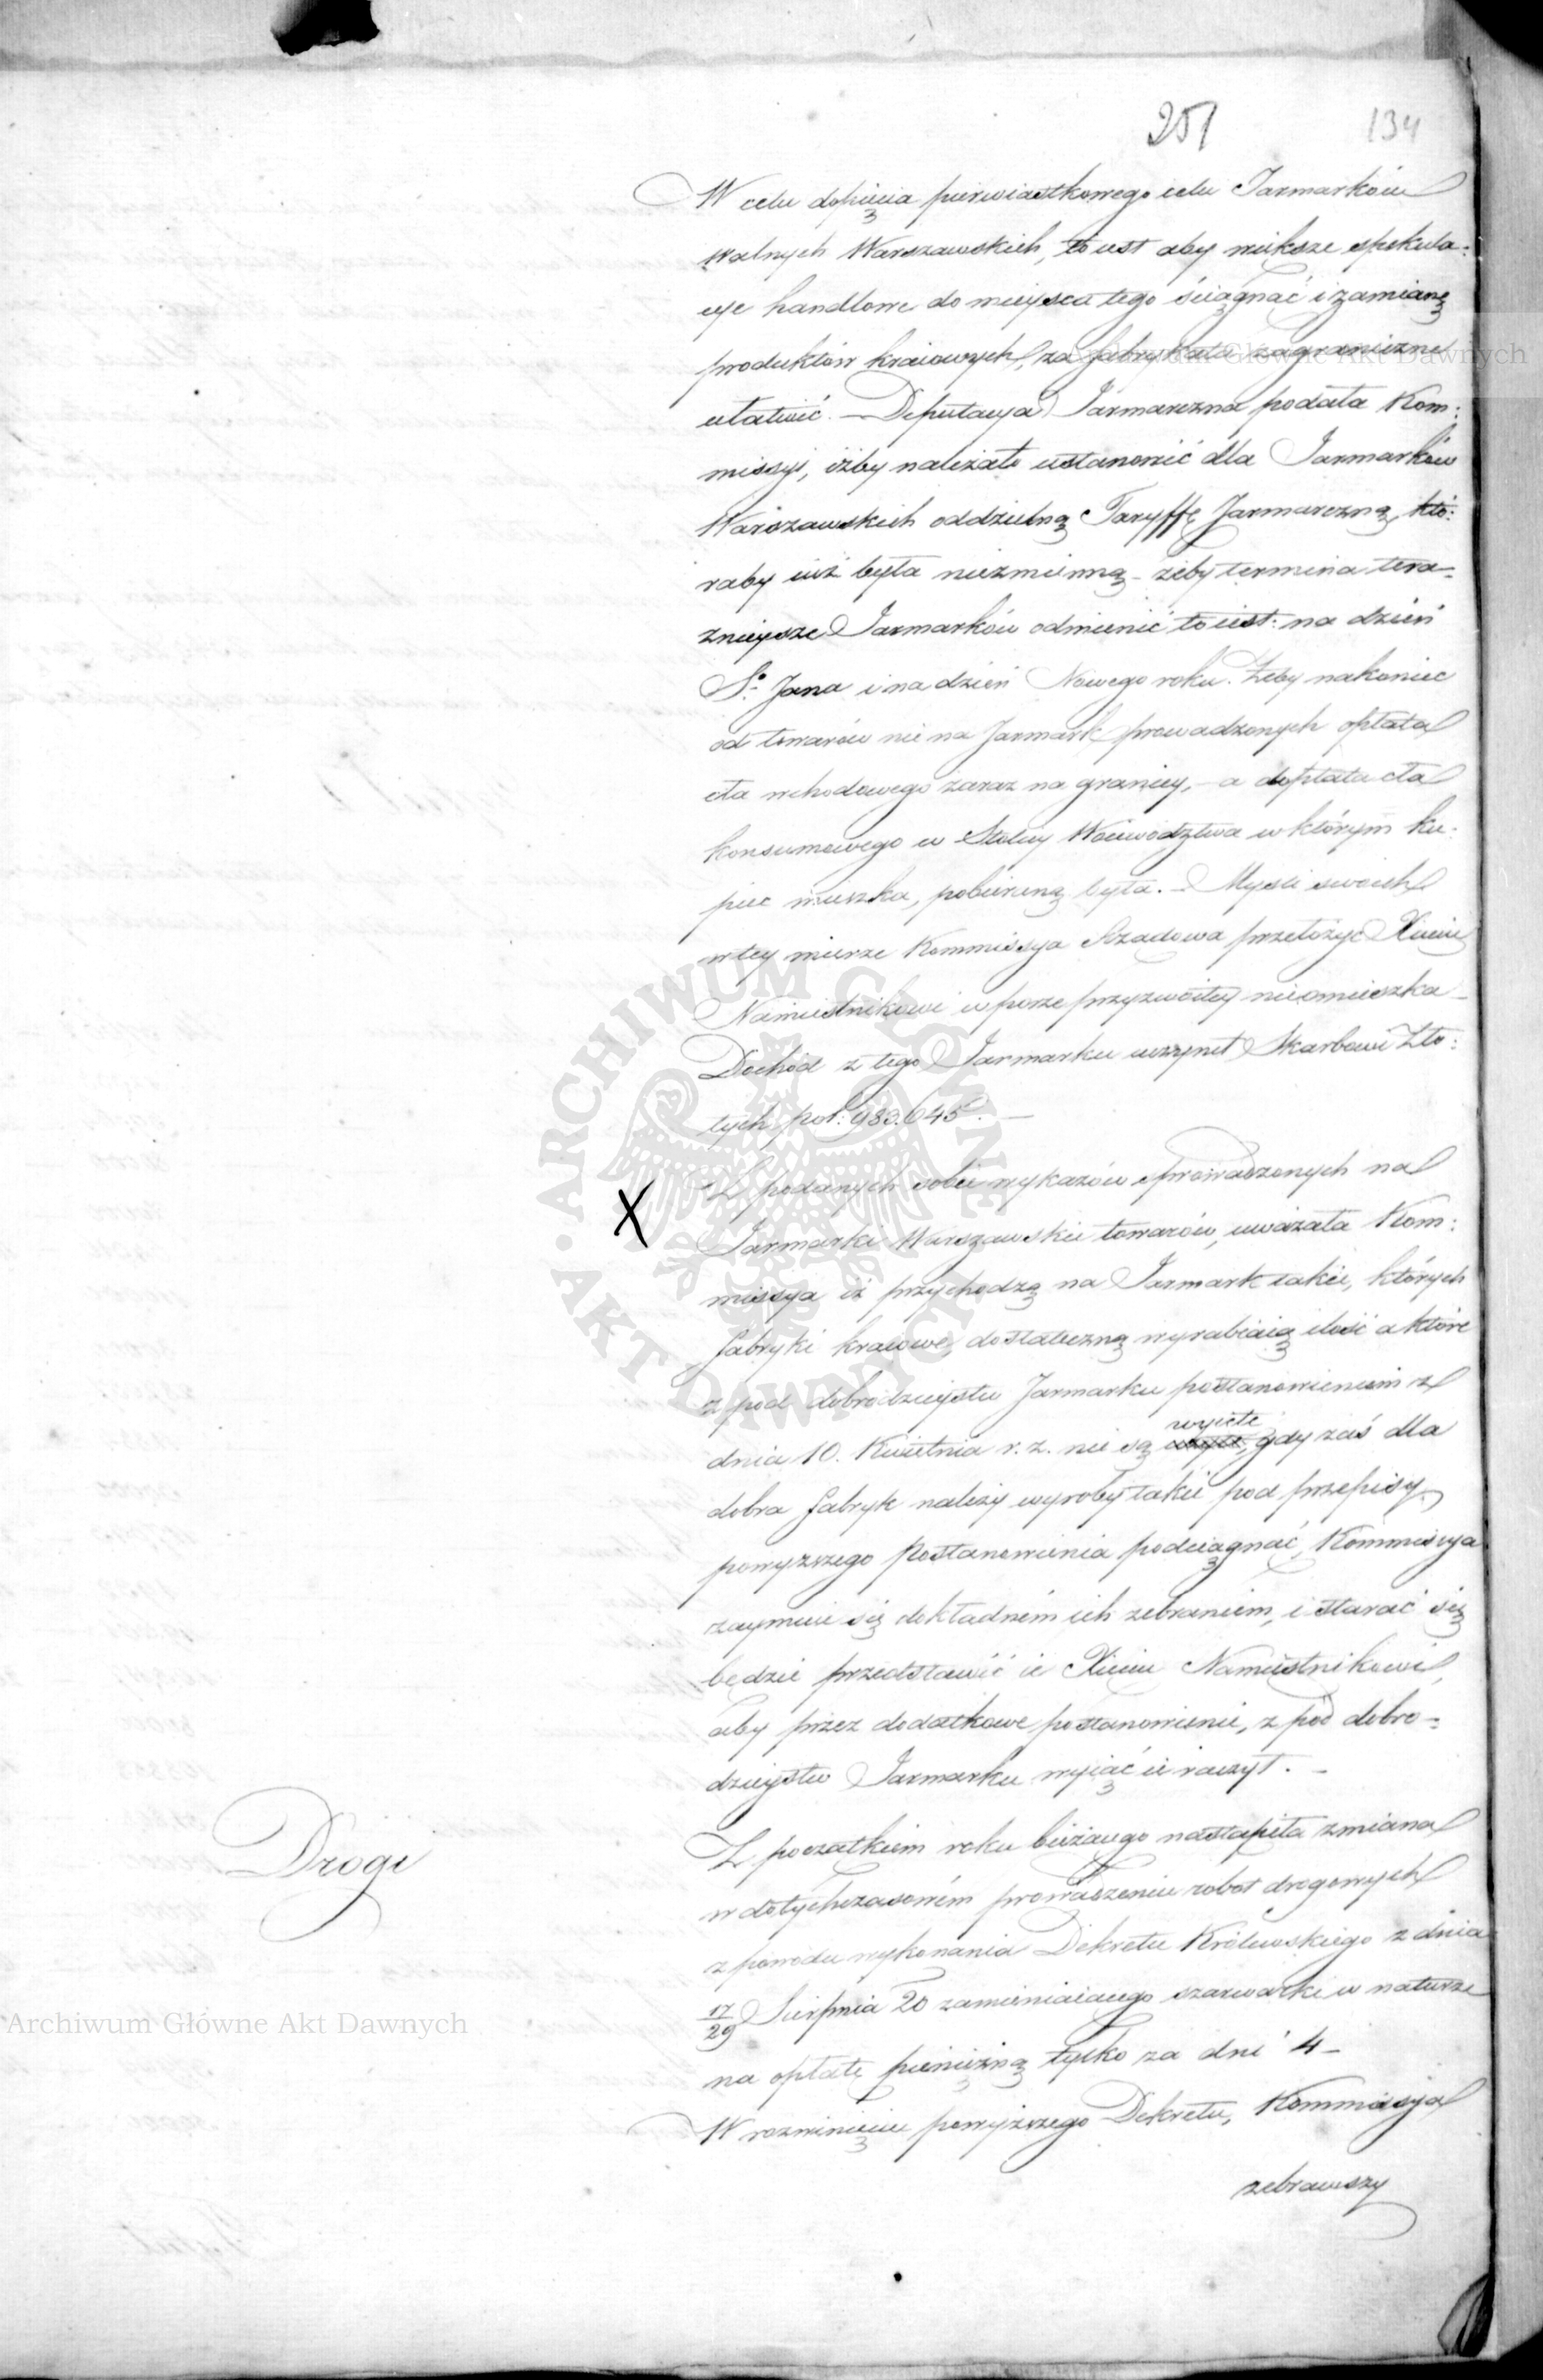 251 134
W celu dopięcia pierwiastkowego celu Jarmarków
walnych Warszawskich, to iest aby większe spekula:
cye handlowe do mieysca tego ściągnąć i zamianę
produktów kraiowych, za fabrykata zagraniczne
ułatwić. — Deputacya Jarmarczna podała Kom:
missyi, iżby należało ustanowić dla Jarmarków
Warszawskich oddzielną Taryffę Jarmarczną, któ:
raby iuż była niezmienną – żeby termina tera-
znieysze Jarmarków odmienić to iest: na dzień
So Jana i na dzień Nowego roku. Żeby nakoniec
od towarów nie na Jarmark prowadzonych opłata
cła wchodowego zaraz na granicy, – a dopłata cła
konsumowego w Stolicy Woiewodztwa w którym ku:
piec mieszka, pobieraną była. – Myśli swoich
w tey mierze Kommissya Rządowa przełożyć Xięciu
Namiestnikowi w porze przyzwoitey nieomieszka –
Dochód z tego Jarmarku uczynił Skarbowi Zło:
tych pol: 983.045. —
X
Z podanych sobie wykazów sprowadzonych na
Jarmarki Warszawskie towarów, uważała Kom:
missya iż przychodzą na Jarmark takie, których
fabryki kraiowe, dostateczną wyrabiaią ilość a które
z pod dobrodzieystw Jarmarku postanowieniem z
wyięte
dnia 10. Kwietnia r. z. nie są gdy zaś dla
dobra fabryk należy wyroby takie pod przepisy
powyższego Postanowienia podciągnąć, Kommissya
zaymuie się dokładném ich zebraniem, i starać się
będzie przedstawić ie Xięciu Namiestnikowi,
aby przez dodatkowe postanowienie, z pod dobro-
dzieystw Jarmarku wyiąć ie raczył. –
Drogi
Z początkiem roku bieżącego nastąpiła zmiana
w dotychczasowém prowadzeniu robot drogowych
z powodu wykonania Dekretu Królewskiego z dnia
17/29 Sierpnia 20 zamieniaiącego szarwarki w naturze
na opłatę pieniężną tylko za dni 4 –
W rozwinięciu powyższego Dekretu, Kommissya
zebrawszy
Archiwum Główne Akt Dawnych
Archiwum Główne Akt Dawnych
ARCHIWUM GŁÓWNE
AKT DAWNYCH